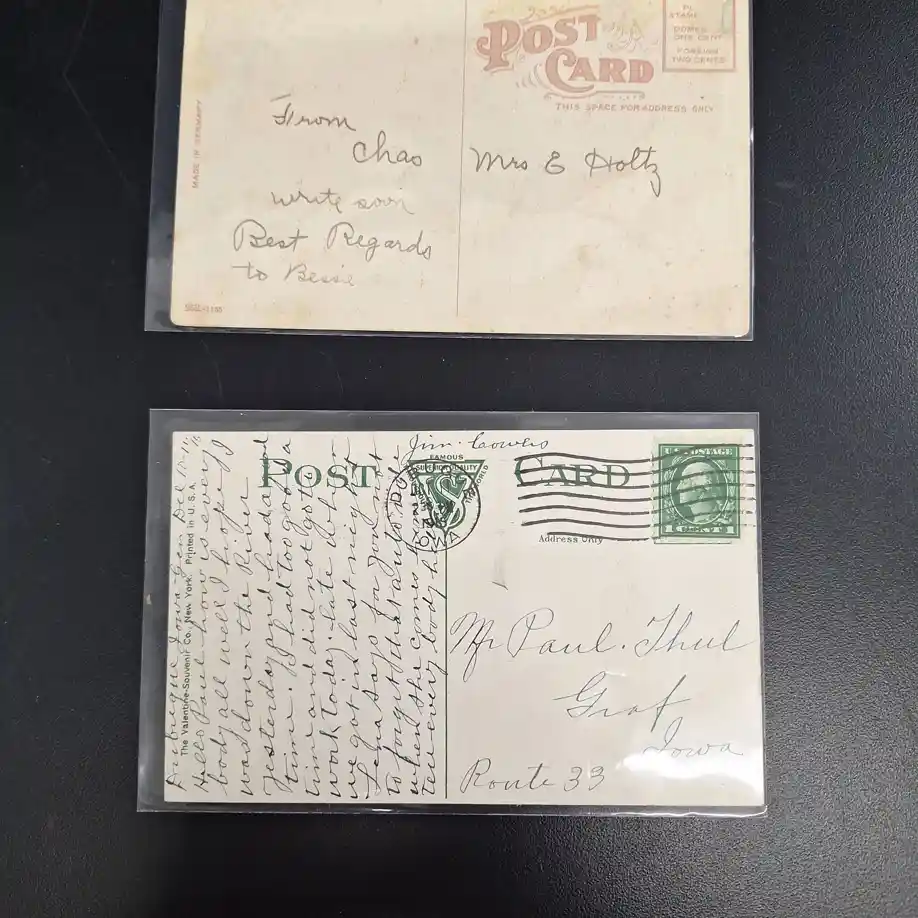 POST
CARD
STAMP
DOMES
ONE CENT
FOREIGN
TWO CENTS
THIS SPACE FOR ADDRESS ONLY
MADE IN GERMANY
From
Chas
write soon
Best Regards
to Bessie
Mrs E Holtz
Jim
POST CARD
FAMOUS
SUPERIOR QUALITY
WORLD
IOWA
U.S. POSTAGE
Address Only
The Valentine-Souvenir Co., New York. Printed in U. S. A.
Dubuque Iowa
Hello Paul how is every
body all well I hope I
was down the River
Yesterday and had a
time. I had too good a
time and did not go to
work today. late when
we got in last night
Lena says for you not
to forget that auto ride
when she comes
tell every body h
Mr Paul. Thul
Graf
Iowa
Route 33